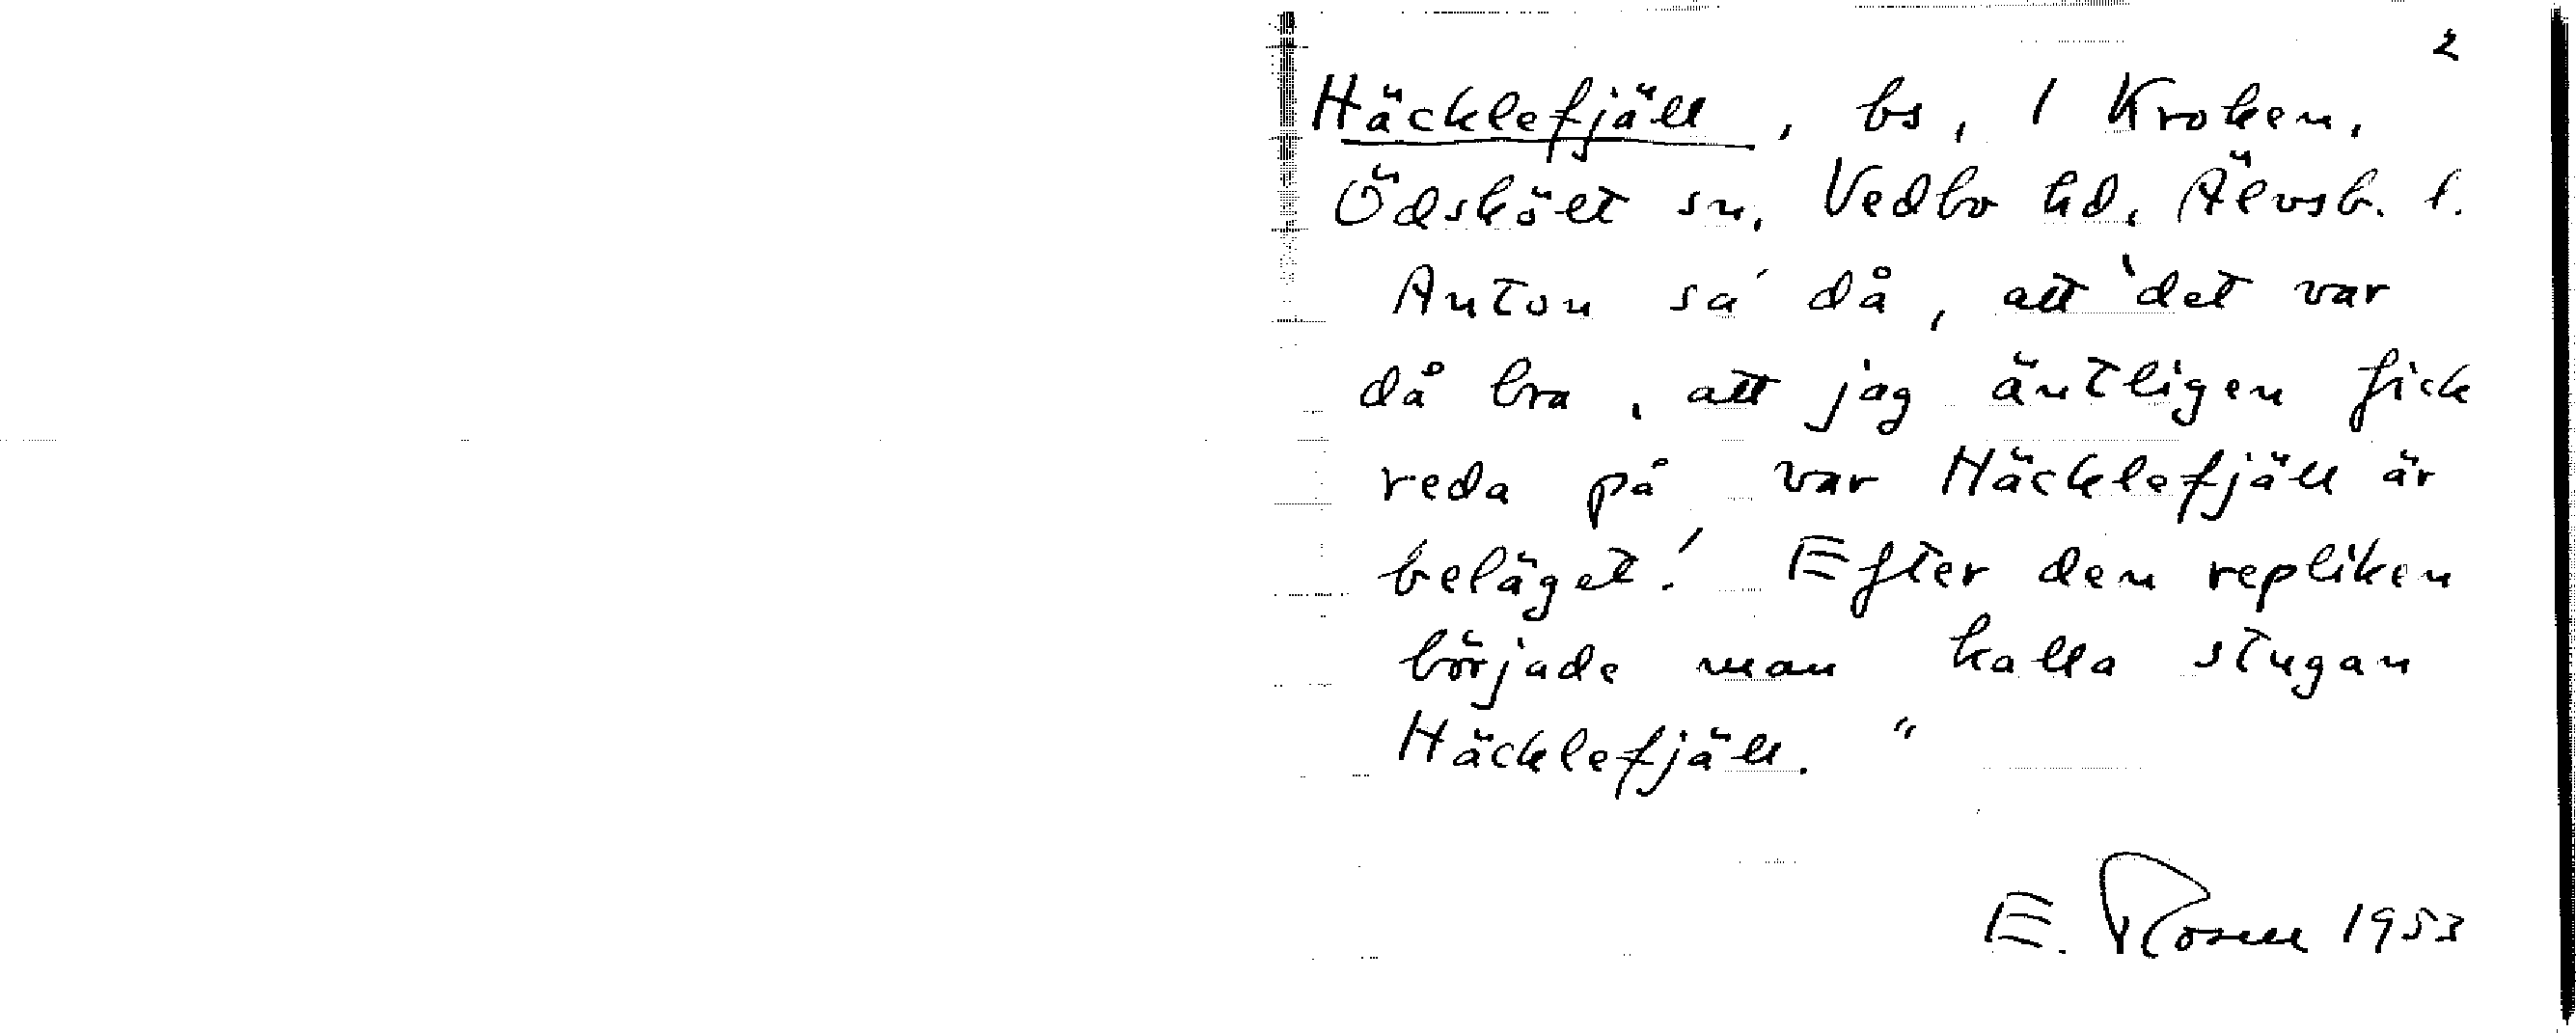 2
Häcklefjäll, bs, 1 Kroken,
Ödskölt sn, Vedbo hd, Älvsb. l.
Anton sa' då, att 'det var
då bra, att jag äntligen fick
reda på var Häcklefjäll är
beläget! Efter den repliken
började man kalla stugan
Häcklefjäll."
E. Rosell 1953